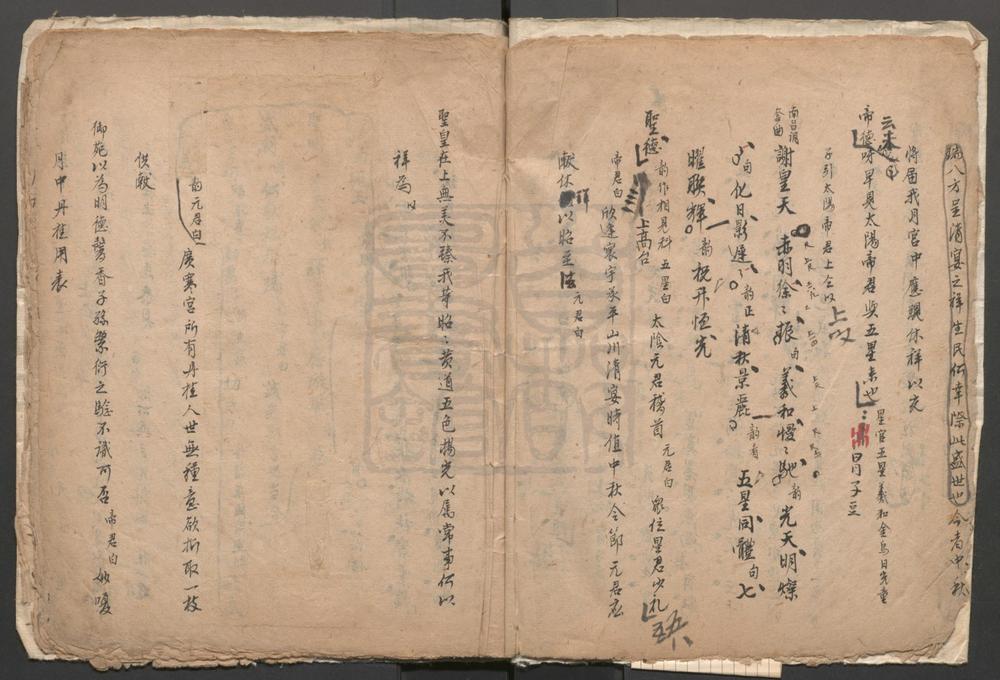 八方呈清宴之祥生民何幸際此盛世也今者中秋
將届我月宮中應襯休祥以充
云未
帝德呀早見太陽帝君與五星來也
星官五星羲和金烏日光童
子引太陽帝君上仝以
上以
南呂調
套曲
謝皇天 赤羽徐〻振句羲和慢〻馳韵光天明燦
句化日影遲韵正清秋景麗韵看五星同軆句七
曜聯輝韵祝升恒光
聖德韵作相見科五星白太陰元君稽首元君白衆位星君少礼
上高台
帝君白欣逢寰宇承平山川清宴時值中秋令節元君應
献休祥以昭至
元君白
聖皇在上無美不臻我等昭〻黄道五色揚光以属常事何以
祥為
韵元君白
廣寒宮所有丹桂人世無種意欲折取一枝
恭献
御苑以為明德馨香子孫繁衍之驗不識可否帝君白妙嗄
月中丹桂用表